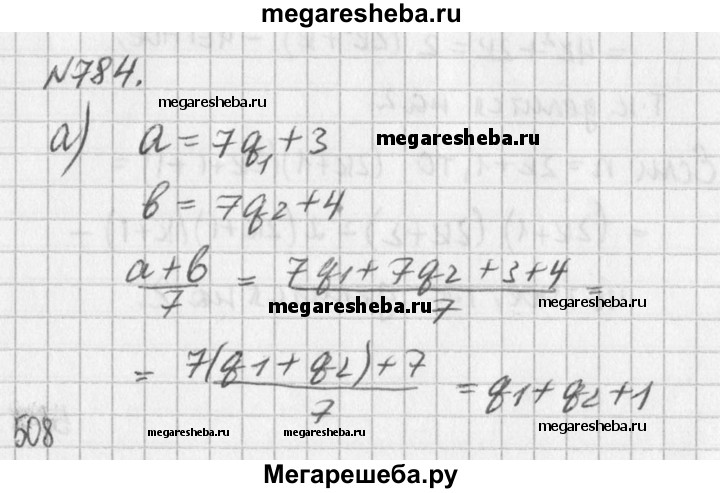 megaresheba.ru
N784.
megaresheba.ru
а) a = 7q1 + 3 megaresheba.ru
b = 7q2 + 4
(a + b)/7 = (7q1 + 7q2 + 3 + 4)/7 =
megaresheba.ru megaresheba.ru megaresheba.ru
= (7(q1 + q2) + 7)/7 = q1 + q2 + 1
508 megaresheba.ru megaresheba.ru megaresheba.ru
Мегарешеба.ру